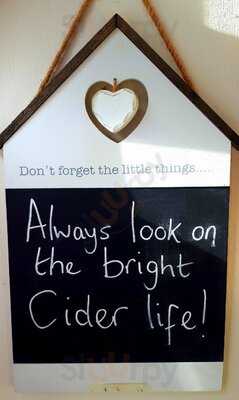 Don't forget the little things.....
Always look on
the bright
Cider life!